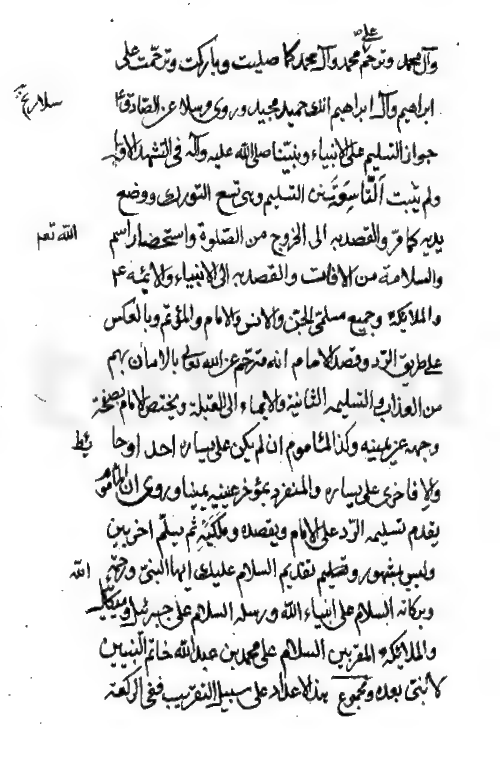 وآل محمد وترحم على محمد وآل محمد كما صليت وباركت وترحمت على
ابراهيم وآل ابراهيم انك حميد مجيد وروى مرسلا عن الصادق ع
جواز التسليم على الانبياء ونبينا صلى الله عليه وآله فى التشهد الاول
ولم يثبت التاسعة سنن التسليم وهى تسع التورك ووضع
يديه كما مر والقصد به الى الخروج من الصلوة واستحضار اسم الله تعم
والسلامة من الافات والقصد به الى الانبياء والائمة ع
والملائكة وجميع مسلمى الجن والانس والامام والمؤتم وبالعكس
على طريق الرد وقصد الامام انه مترجم عن الله تعالى بالامان لهم
من العذاب والتسليمة الثانية والايماء الى القبلة ويختص الامام بصفحة
وجهه عن يمينه وكذا المأموم ان لم يكن على يساره احد او حائط
والا فاخرى على يساره والمنفرد بمؤخر عينيه يمينا وروى ان المأموم
يقدم تسليمه الرد على الامام ويقصده وملكيه ثم يسلم اخريين
وليس بمشهور وتقديم السلام عليك ايها النبى ورحمة الله
وبركاته السلام على انبياء الله ورسله السلام على جبرئيل وميكائيل
والملائكة المقربين السلام على محمد بن عبدالله خاتم النبيين
لا نبى بعده ومجموع هذه الاعداد على سبيل التقريب ففى الركعة